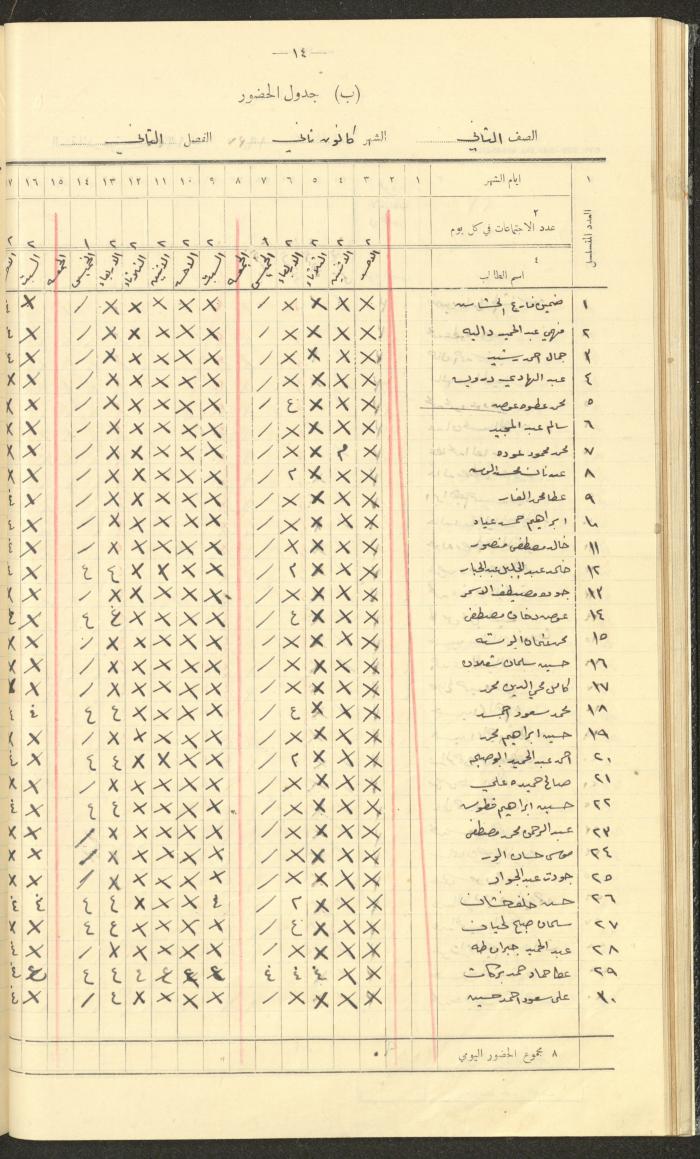 — ١٤ —
(ب) جدول الحضور
الصف الثاني الشهر كانون ثاني الفصل الثاني
١ ايام الشهر ١ ٢ ٣ ٤ ٥ ٦ ٧ ٨ ٩ ١٠ ١١ ١٢ ١٣ ١٤ ١٥ ١٦ ٧
العدد المتسلسل
٢
عدد الاجتماعات في كل يوم ٢ ٢ ٢ ٢ ١ ٢ ٢ ٢ ٢ ٢ ١ ٢ ٢
٤
اسم الطالب الاحد الاثنين الثلاثاء الاربعاء الخميس الجمعه السبت الاحد الاثنين الثلاثاء الاربعاء الخميس الجمعه السبت
١ فارع X X X X / X X X X X / X ٤
٢ عبد الحميد X X X X / X X X X X / X X
٣ جمال رشيد X X X X / X X X X X / X ٤
٤ عبد الهادي درويش X X X X / X X X X X / X X
٥ محمد عوض X X X ٤ / X X X X X / X X
٦ سالم عبد المجيد X X X X / X X X X X / X X
٧ محمد محمود عوده X م X X / X X X X X / X X
٨ X X X ٢ / X X X X X / X X
٩ عطا محمد الفار X X X X / X X X X X / X ٤
١٠ ابراهيم حسن عياد X X X X / X X X X X / X ٤
١١ خالد مصطفى منصور X X X X / X X X X X / X ٤
١٢ عبد الجليل عبد الجبار X X X ٢ / X X X X ٤ ٤ X ٤
١٣ جوده مصطفى الاسمر X X X X / X X X X X / X X
١٤ عوض مصطفى X X X ٤ / X X X X ٤ ٤ X ٤
١٥ محمد عثمان X X X X / X X X X X / X X
١٦ حسين سلمان شعلان X X X X / X X X X X / X X
١٧ كامل محي الدين محمد X X X X / X X X X X / X X
١٨ محمد سعود احمد X X X ٤ / X X X X ٤ ٤ ٤ ٤
١٩ حسين ابراهيم محمد X X X X / X X X X X / X X
٢٠ احمد عبد الحميد X X X ٢ / X X X X ٤ ٤ X ٤
٢١ صالح حميده علي X X X X / X X X X X / X X
٢٢ حسين ابراهيم X X X X / X X X X ٤ ٤ X ٤
٢٣ عبد الرحمن محمد مصطفى X X X X / X X X X X / X X
٢٤ موسى حسان X X X X / X X X X X / X X
٢٥ جودت عبد الجواد X X X X / X X X X X / X X
٢٦ حسن خلف X X X ٢ / ٤ X X X ٤ ٤ ٤ ٤
٢٧ سلمان صبح لحيان X X X ٤ / X X X X ٤ ٤ X X
٢٨ عبد الحميد جبران طه X X X X / X X X X X / X ٤
٢٩ عطا حماد حمد بركات X X ٤ ٤ ٤ ٤ ٤ ٤ ٤ ٤ ٤ ٤ ٤
٣٠ علي سعود احمد حسين X X X X / X X X X ٤ / X ٤
٨ مجموع الحضور اليومي